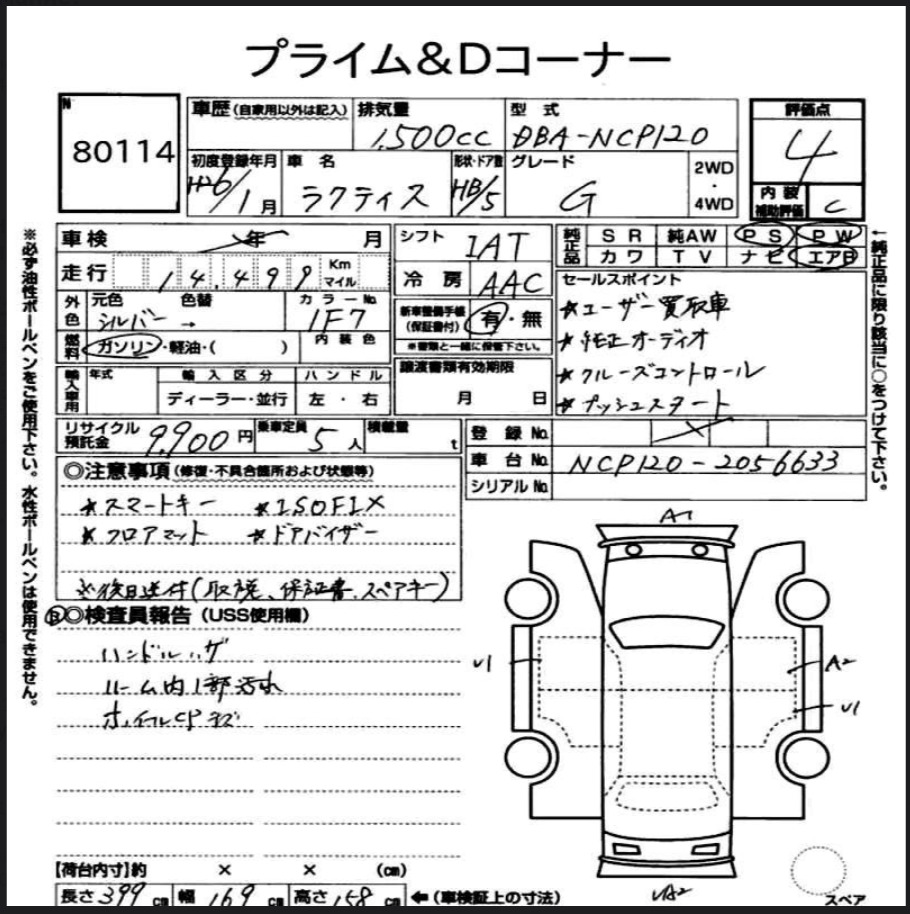 プライム&Dコーナー
N
80114
車歴(自家用以外は記入) 排気量 1,500cc 型式 DBA-NCP120
評価点 4
初度登録年月 H26/1月 車名 ラクティス 形状・ドア数 HB/5 グレード G 2WD・4WD
内装補助評価 C
車検 年 月
走行 14,499 Km マイル
外色 元色 シルバー 色替 → カラーNo. 1F7
燃料 ガソリン・軽油・( ) 内装色
輸入車用 年式 輸入区分 ディーラー・並行 ハンドル 左・右
シフト IAT
冷房 AAC
新車整備手帳(保証書付) 有・無
※書類と一緒に保管下さい。
譲渡書類有効期限
月 日
純正品 SR 純AW PS PW
カワ TV ナビ エアB
セールスポイント
*ユーザー買取車
*純正オーディオ
*クルーズコントロール
*プッシュスタート
リサイクル預託金 9,900円 乗車定員 5人 積載量 t
登録No.
車台No. NCP120-2056633
シリアルNo.
◎注意事項(修復・不具合箇所および状態等)
*スマートキー *ISOFIX
*フロアマット *ドアバイザー
※後日送付(取説、保証書、スペアキー)
B◎検査員報告(USS使用欄)
ハンドル
ルーム内1部汚れ
ホイールCPキズ
A1
U1
A2
U1
UA2
スペア
【荷台内寸】約 × × (cm)
長さ 399 cm 幅 169 cm 高さ 158 cm ←(車検証上の寸法)
※必ず油性ボールペンをご使用下さい。水性ボールペンは使用できません。
←純正品に限り該当に○をつけて下さい。